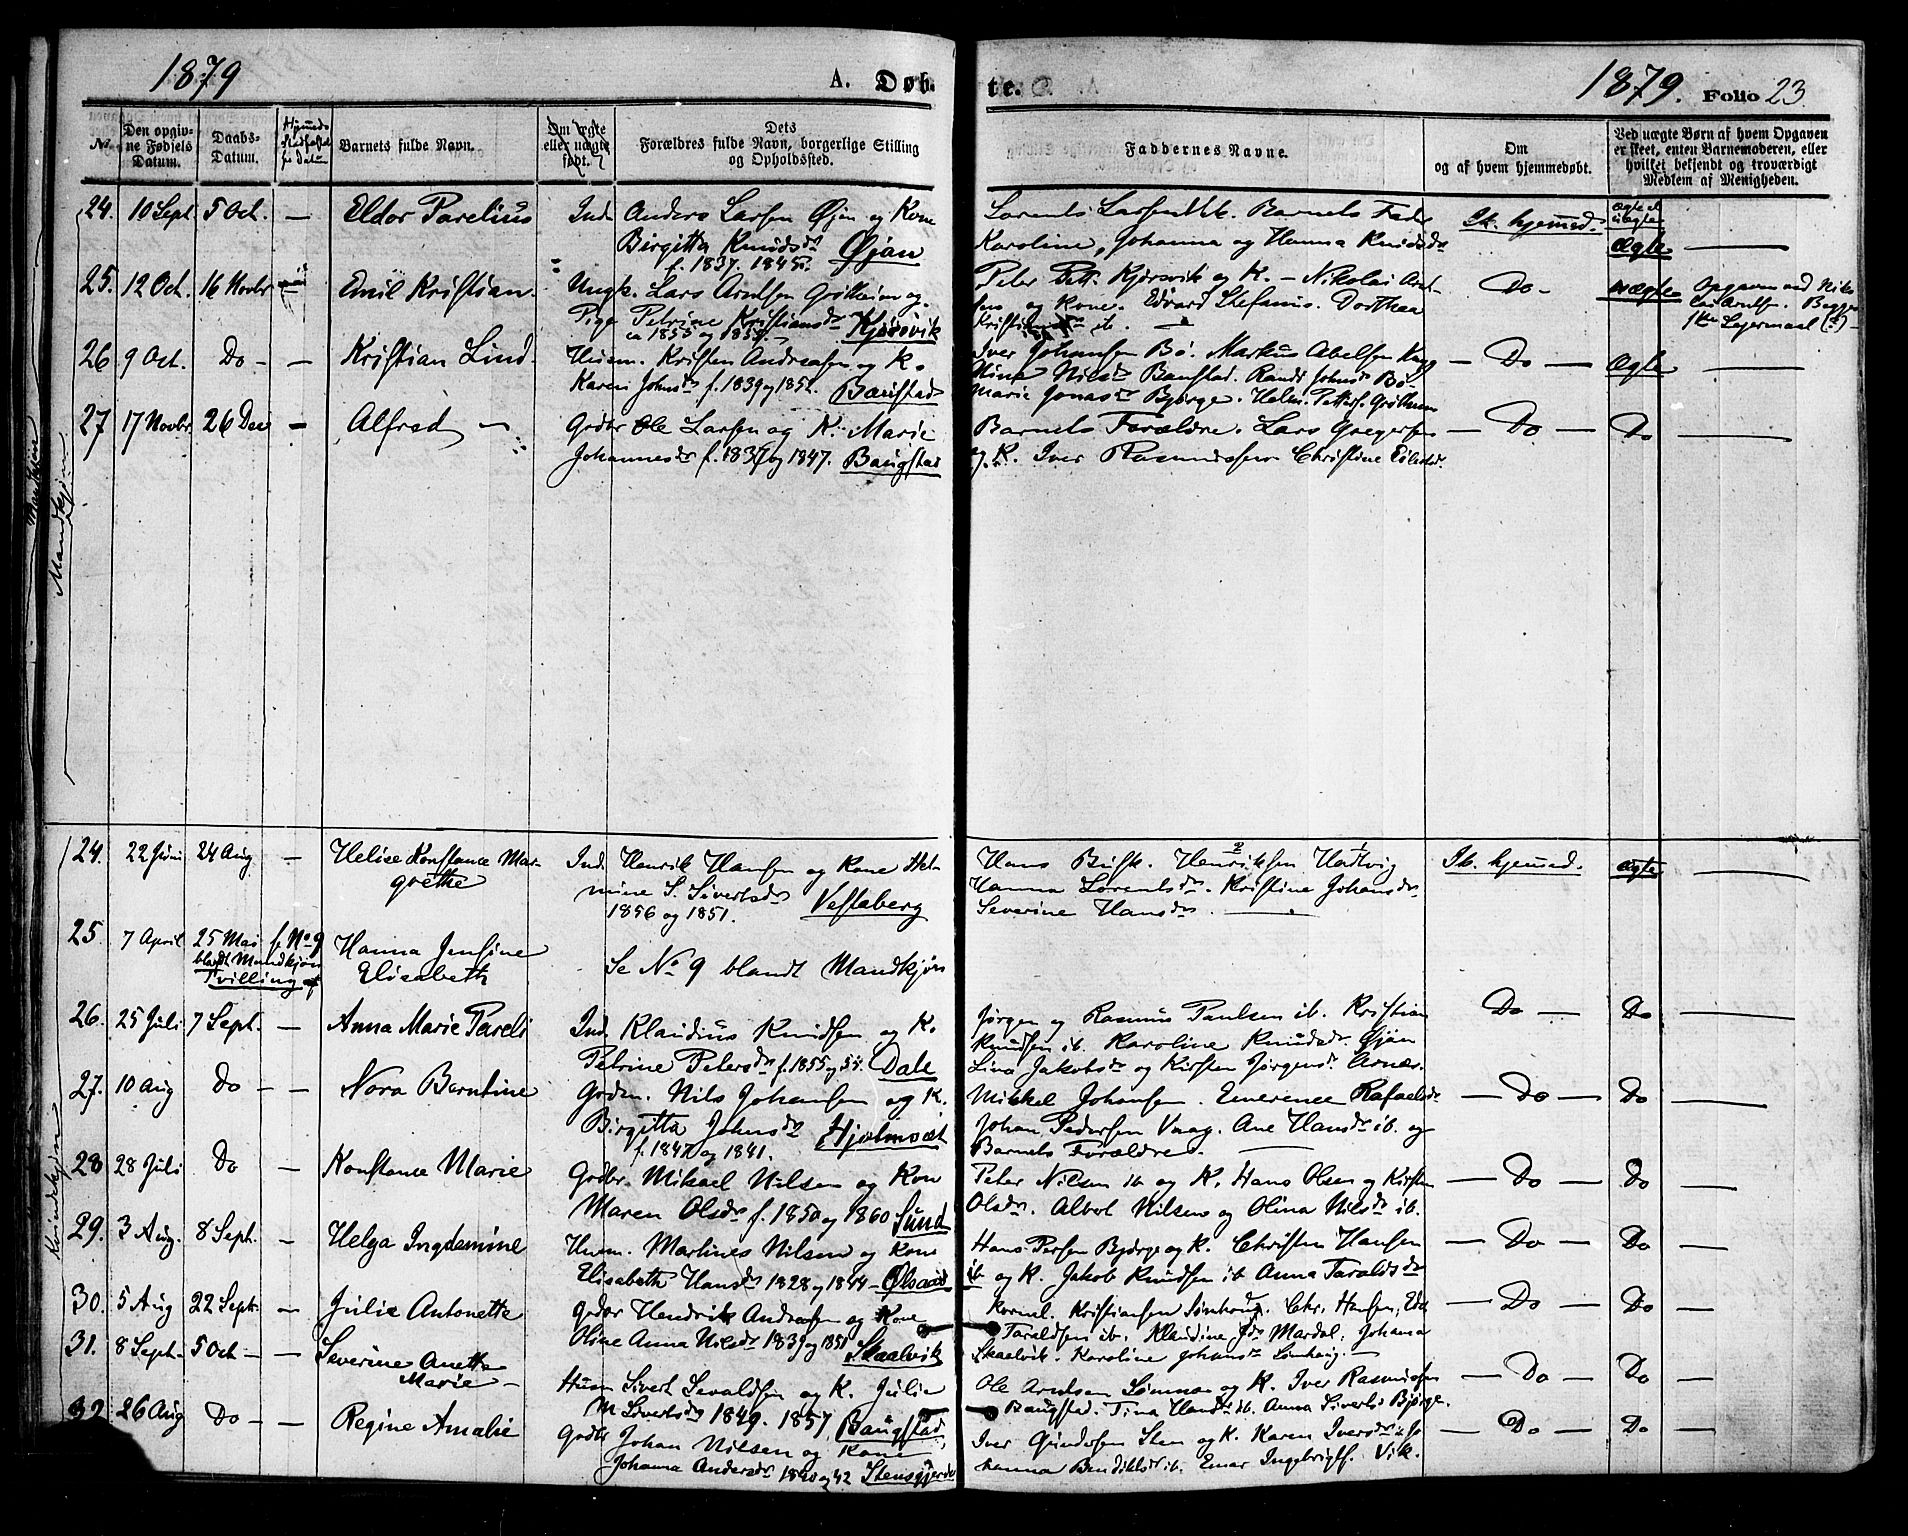 1879 A. Døb-
te. 1879. Folio 23
No.
Den opgiv-
ne Fødsels
Datum.
Daabs-
Datum.
Barnets fulde Navn.
Om ægte
eller uægte
født.
Dets
Forældres fulde Navn, borgerlige Stilling
og Opholdssted.
Faddernes Navne.
Om
og af hvem hjemmedøbt.
Ved uægte Børn af hvem Opgaven
er skeet, enten Barnemoderen, eller
hvilket bekjendt og troværdigt
Medlem af Menigheden.
Mandkjøn
24. 10 Sept 5 Oct. — Eldor Parelius Ind. Anders Larsen Øjen og Kone
Birgitta Knudsdr Øjan
f. 1837. 1845.
Lorents Larsen Barnets Fader
Karoline, Johanna og Hanna Knudsdr
Ik. hjemmed. Ægte —
25. 12 Oct. 16 Novbr Emil Kristian. Ungk. Lars Arntsen Grötheim og
Pige Petrine Kristiansdr Kjørsvik
ca 1853 og 1859.
Peter Pett. Kjørsvik og K. — Nikolai Arnt-
sen og Kone. Edvard Stefanus. Dorthea
ib. —
Do - uægte
26 9 Oct. Do - — Kristian Lind. Husm. Kristen Andreasen og K.
Karen Johnsdr f. 1839 og 1852. Bævstad
Iver Johansen Bö. Markus Abelsen
Nina Nilsdr Randi Johnsdr Bö
Marie Jonasdr Bjørge. Peters. Grötheim
— Do — Ægte —
27 17 Novbr 26 Dec — Alfred — Grdbr Ole Larsen og K. Marie
Johannesdr f. 1837 og 1847. Baugstad
Barnets Forældre. Lars Gregersen
og K. Iver Rasmussen Christine
— Do — Do —
Kvindekjøn
24. 22 Juni 24 Aug — Helise Konstance Mar-
grethe
Ind. Henrik Hansen og Kone Hel-
mine S. Sivertsdr
1856 og 1851. Vestaberg
Hans Henriksen Hadvig
Hanna Lorentsdr. Kristine Johansdr
Severine Hansdr. —
Ik. hjemmed. ægte —
25. 7 April 25 Mai f. No 9
blandt Mandkjön
Tvilling
Hanna Jensine
Elisabeth
Se No 9 blandt Mandkjön
26. 25 Juli 7 Sept. — Anna Marie Pareli Ind. Klaudius Knudsen og K.
Petrine Petersdr f. 1855 og 55. Dale
Jørgen og Rasmus Paulsen ib. Kristian
Knudsen ib. Karoline Knudsdr Øjan
Lina Jakobsdr og Kirsten Jørgensdr Arnes.
Do — Do —
27. 10 Aug Do - — Nora Berntine Grdm. Nils Johansen og K.
Birgitta Johnsdr Hjelmsæt
f. 1847 og 1841.
Mikkel Johansen. Emerence Rafaelsdr
Johan Pedersen Vaag. Ane Hansdr ib. og
Barnets Forældre. —
— Do — Do —
28 28 Juli Do — Konstance Marie Grdbr. Mikael Nilsen og Kone
Maren Olsdr f. 1850 og 1860 Sund
Peter Nilsen ib og K. Hans Olsen og Kirsten
Olsdr. Albert Nilsen og Olina Nilsdr ib.
— Do — Do —
29. 3 Aug. 8 Sept. — Helga Ingdemine Husm. Martines Nilsen og Kone
Elisabeth Hansdr 1828 og 1844 —
Hans Persen Bjørge og K. Christen Hansen
ib og K. Jakob Knudsen ib Anna Taraldsdr
— Do — Do —
30. 5 Aug 22 Sept. — Julie Antonette Grdbr Hendrik Andreasen og Kone
Oline Anna Nilsdr 1839 og 1851 Skaalvik
Kornel. Kristiansen Chr. Hansen,
Taraldsen ib. Klaudine Mardal. Johanna
Skaalvik. Karoline Johansdr —
— Do — Do —
31. 8 Sept. 5 Oct — — Severine Anette
Marie —
Husm Sivert Sevaldsen og K. Julie
M Sivertsdr 1849. 1857 Baugstad
Ole Arntsen og K. Iver Rasmussen
Baugstad. Tina Hansdr ib. Anna Sivertsdr Bjørge.
— Do — Do —
32 26 Aug Do — — Regine Amalie Grdbr Johan Nilsen og Kone
Johanna Andersdr 1840 og 42 Stensgjerdet
Iver Gundersen Sten og K. Karen Iversdr Jo-
hanna Bendiktsdr ib. Einar Ingebrigts. Vik.
— Do — Do —